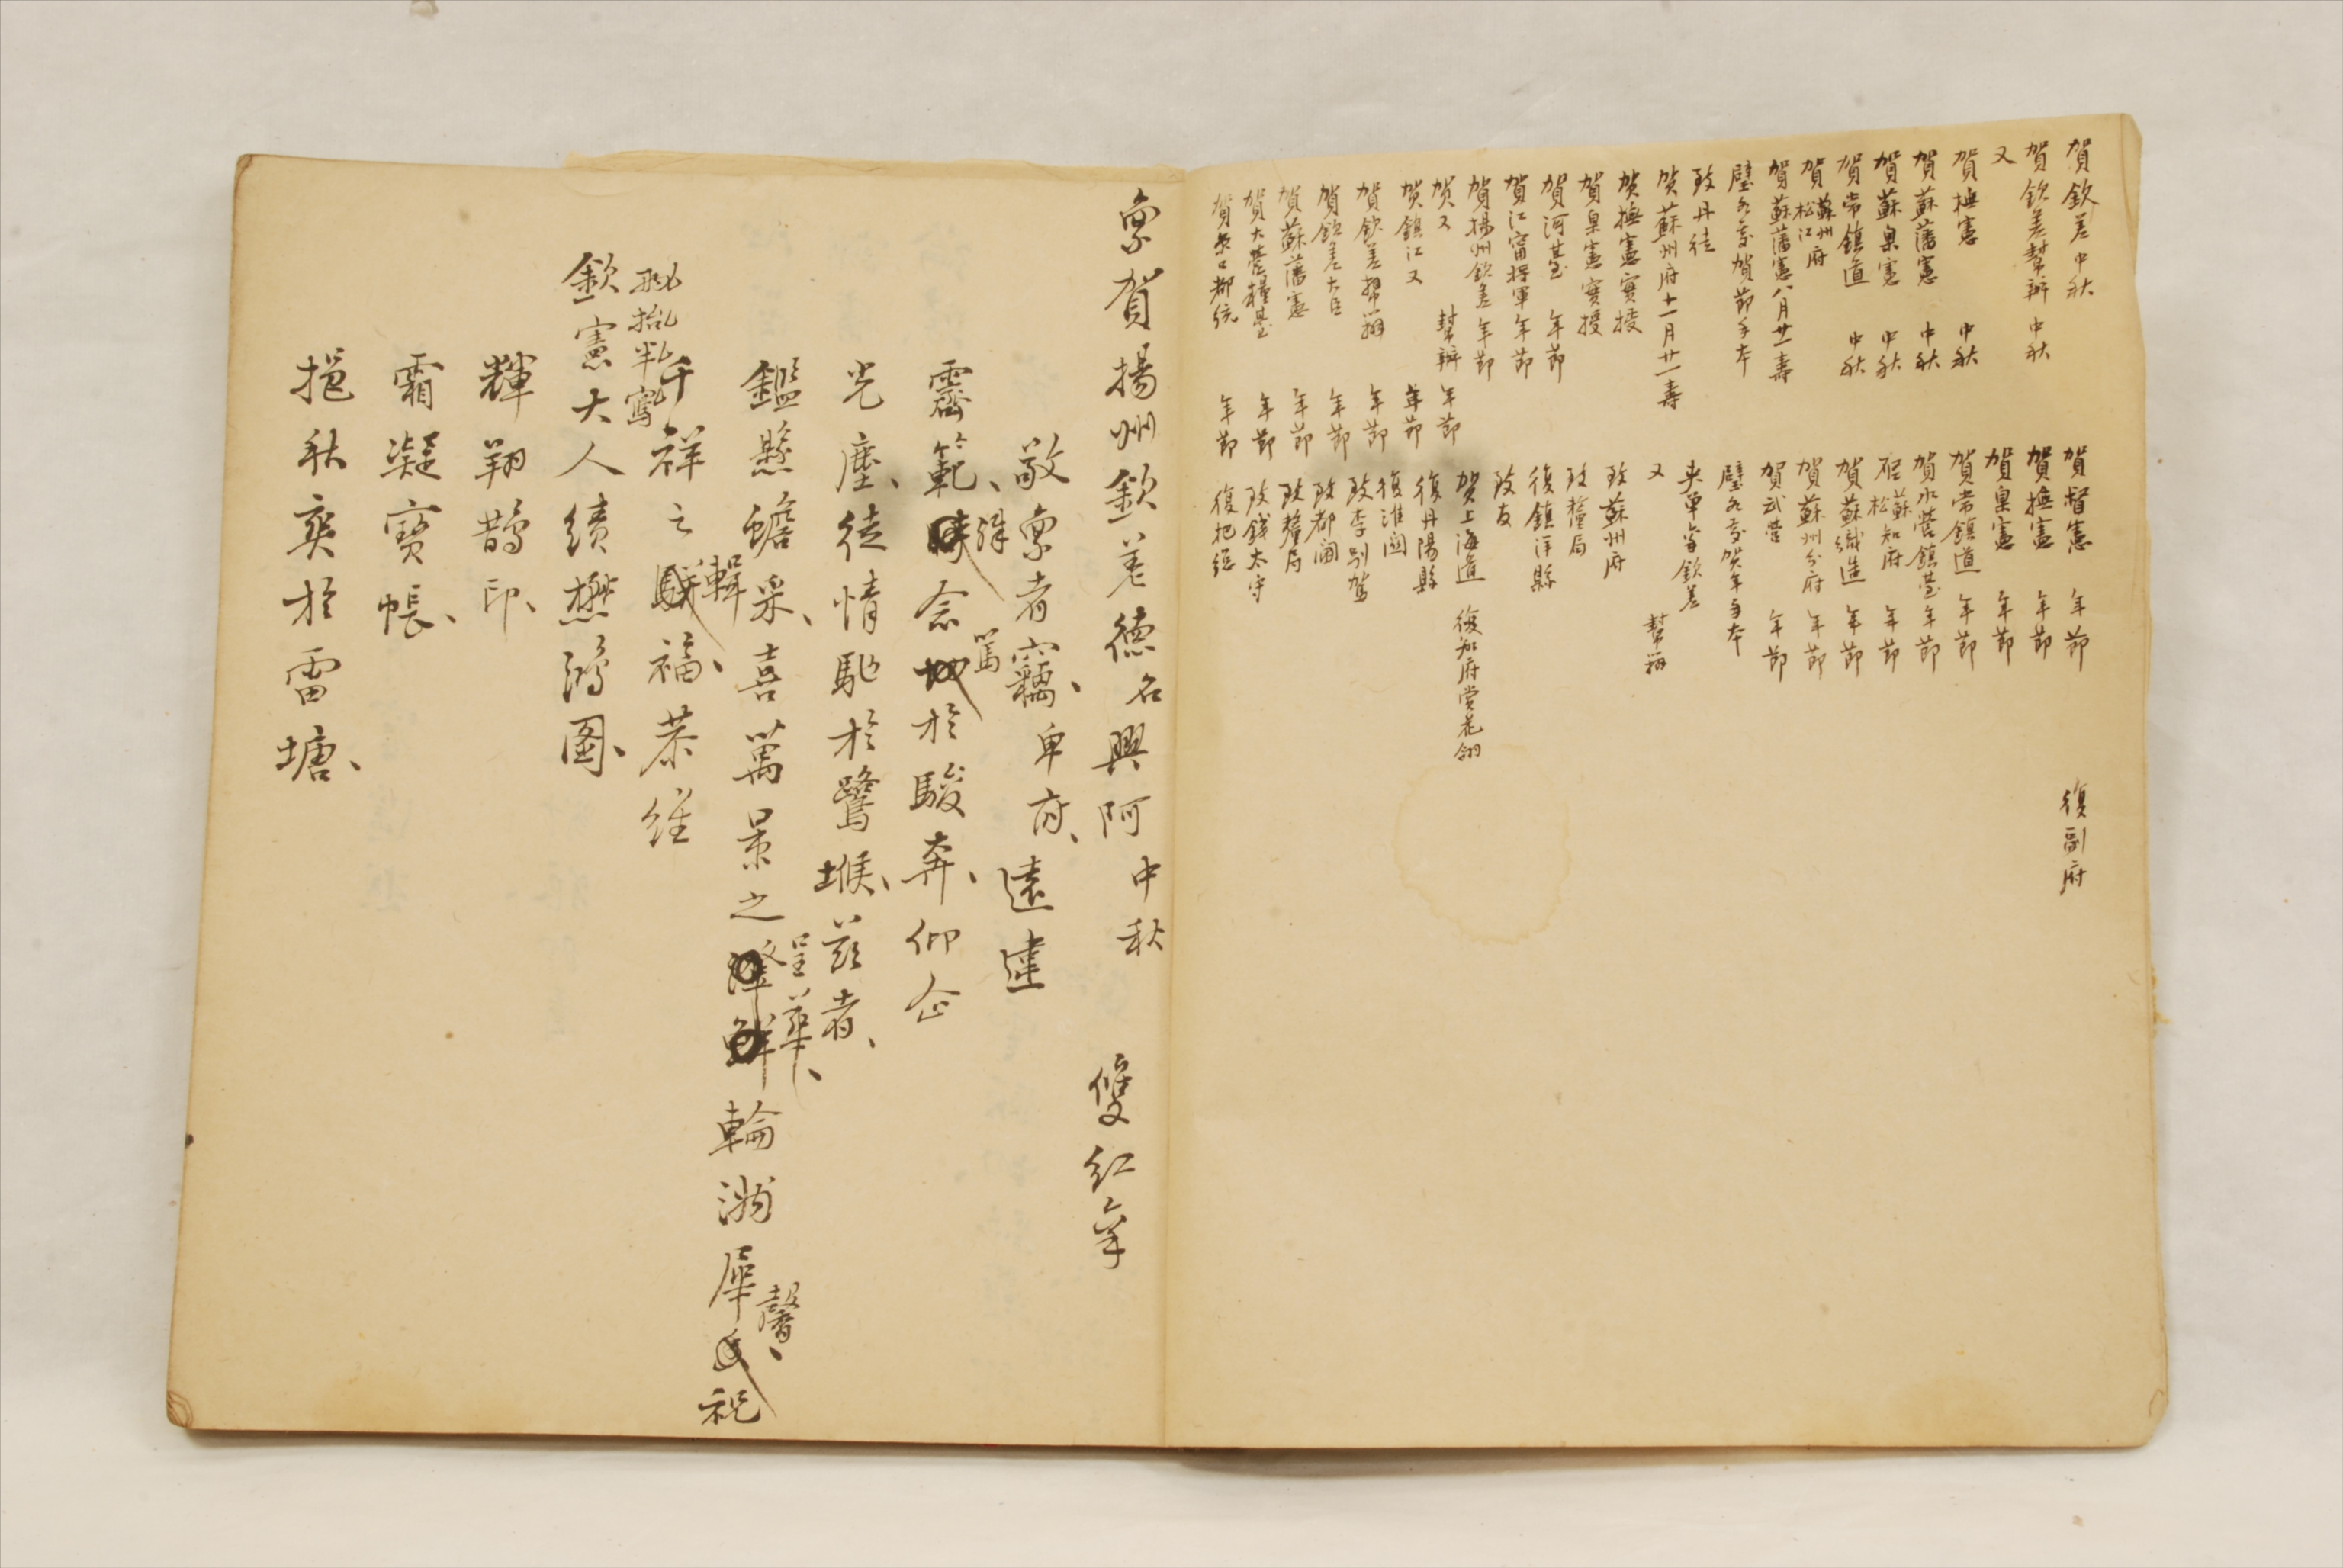 賀欽差中秋
賀欽差幫辦 中秋
又
賀撫憲 中秋
賀蘇藩憲 中秋
賀蘇臬憲 中秋
賀常鎮道 中秋
賀蘇州松江府
賀蘇藩憲八月廿一壽
璧各家賀節手本
致丹徒
賀蘇州府十一月廿一壽
賀撫憲實授
賀臬憲實授
賀河臺 年節
賀江甯將軍年節
賀揚州欽差年節
賀又 幫辦 年節
賀鎮江又 年節
賀欽差幫辦 年節
賀欽差大臣 年節
賀蘇藩憲 年節
賀大營糧臺 年節
賀京口都統 年節
賀督憲 年節
賀撫憲 年節
賀臬憲 年節
賀常鎮道 年節
賀水營鎮臺年節
蘇松知府 年節
賀蘇織造 年節
賀蘇州分府 年節
賀武營 年節
璧各家賀年手本
夾單寄欽差
又 幫辦
致蘇州府
致釐局
復鎮洋縣
致友
賀上海道 復知府賞花翎
復丹陽縣
復淮關
致李別駕
致都閫
致釐局
致錢太守
復把總
復副府
稟賀揚州欽差德名興阿中秋 雙紅稟
敬稟者竊卑府遠違
霽範、殊念篤於駿奔、仰企
光塵、徒情馳於鷺堠、茲者、
鑑懸蟾采、喜萬景之呈華、輪溯犀馨、祝
千祥之輯福、恭維
欽憲大人績懋鴻圖、
輝翔鵲印、
霜凝寶帳、
挹秋爽於雷塘、